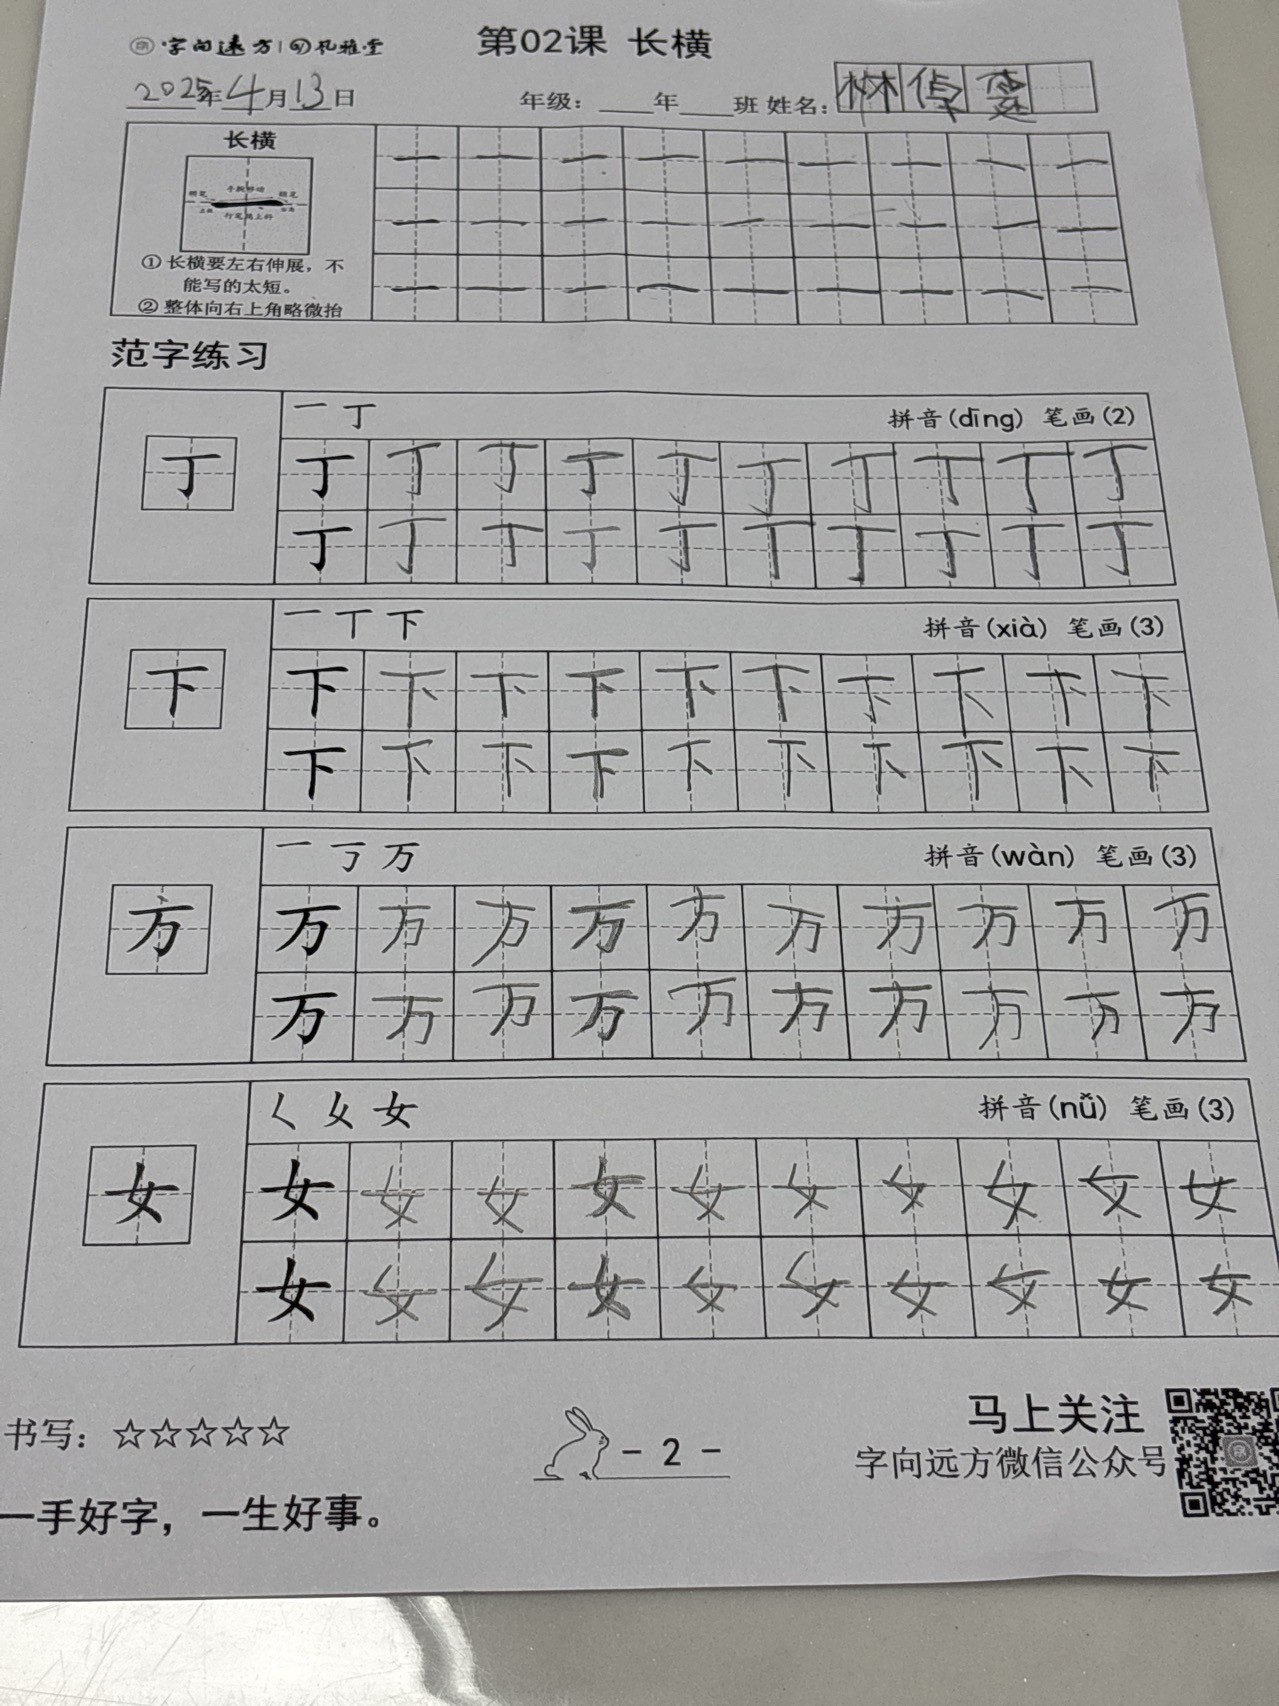 字向远方 礼雅堂
第02课 长横
2025年4月13日 年级：____年____班 姓名：林倬
长横
①长横要左右伸展，不
能写的太短。
②整体向右上角略微抬
范字练习
一 丁 拼音(dīng) 笔画(2)
丁 丁 丁 丁 丁 丁 丁 丁 丁 丁 丁
丁 丁 丁 丁 丁 丁 丁 丁 丁 丁
一 丅 下 拼音(xià) 笔画(3)
下 下 下 下 下 下 下 下 下 下 下
下 下 下 下 下 下 下 下 下 下
一 丂 万 拼音(wàn) 笔画(3)
万 万 万 万 万 万 万 万 万 万 万
万 万 万 万 万 万 万 万 万 万
女 拼音(nǚ) 笔画(3)
女 女 女 女 女 女 女 女 女 女 女
女 女 女 女 女 女 女 女 女 女
书写：☆☆☆☆☆
- 2 -
马上关注
字向远方微信公众号
一手好字，一生好事。